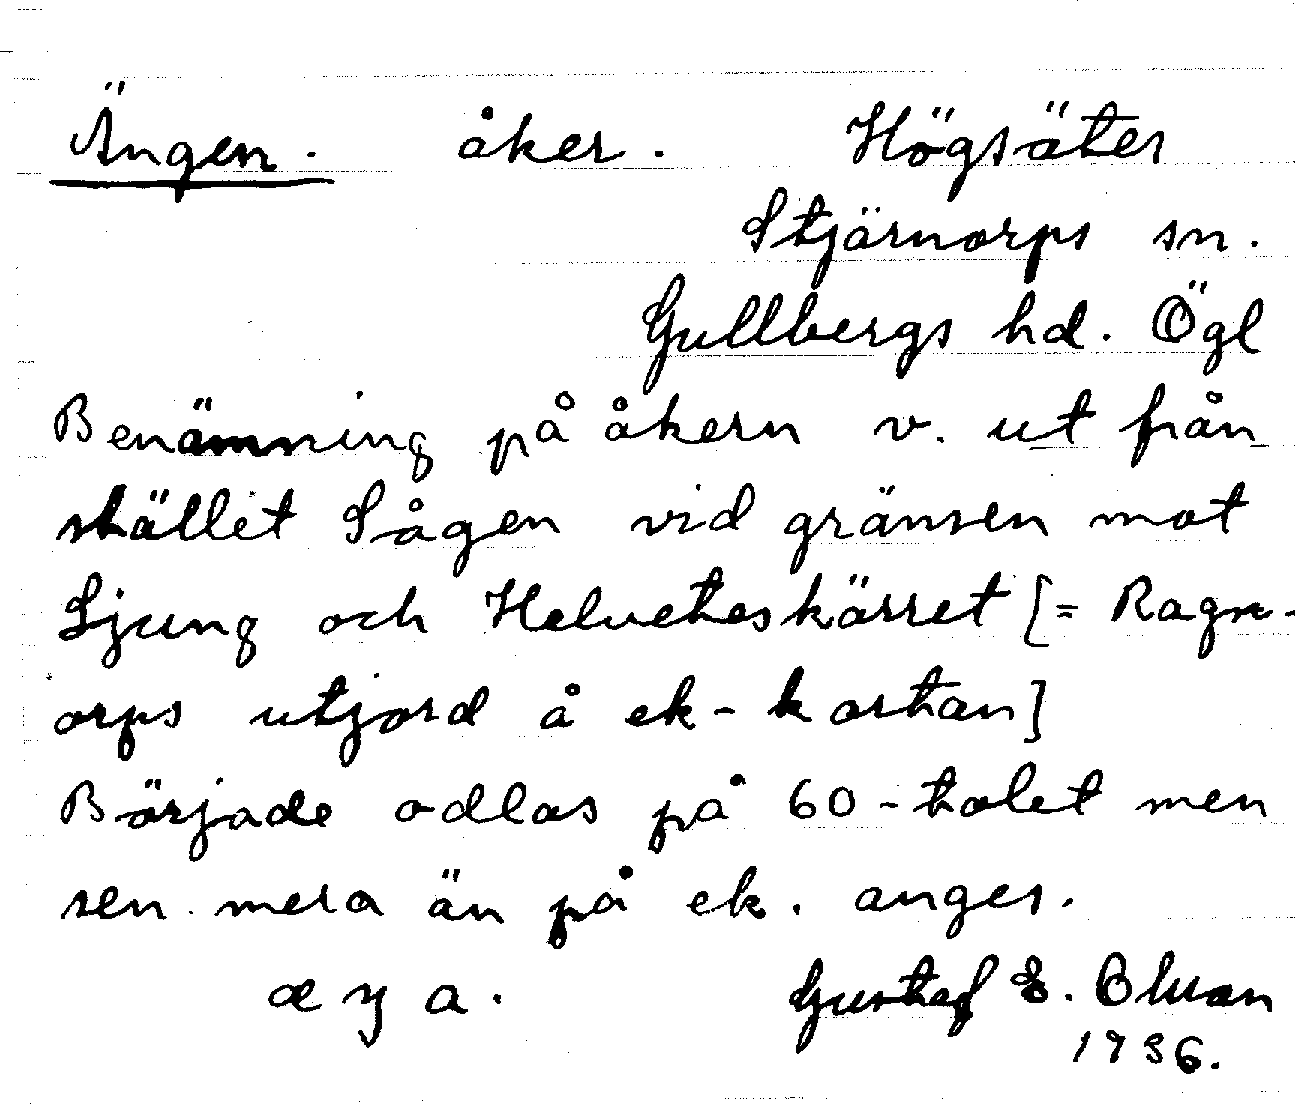 Ängen. åker. Högsäter
Stjärnorps sn.
Gullbergs hd. Ögl
Benämning på åkern v. ut från
stället Sågen vid gränsen mot
Ljung och Helveteskärret [= Ragn-
orps utjord å ek-kartan]
Började odlas på 60-talet men
sen mera än på ek. anges.
Gustaf E.
1936.